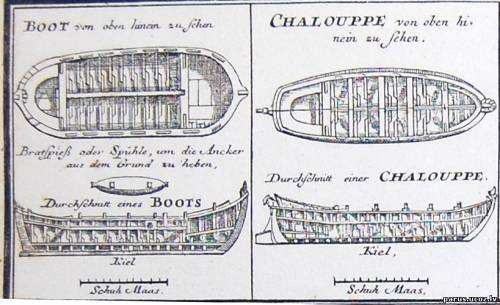 BOOT von oben hinein zu sehen
Bratspieß oder Spühle, um die Ancker
aus dem Grund zu heben,
Durchschnitt eines BOOTS
Kiel
Schuh Maas.
CHALOUPPE von oben hi-
nein zu sehen.
Durchschnitt einer CHALOUPPE.
Kiel,
Schuh Maas,